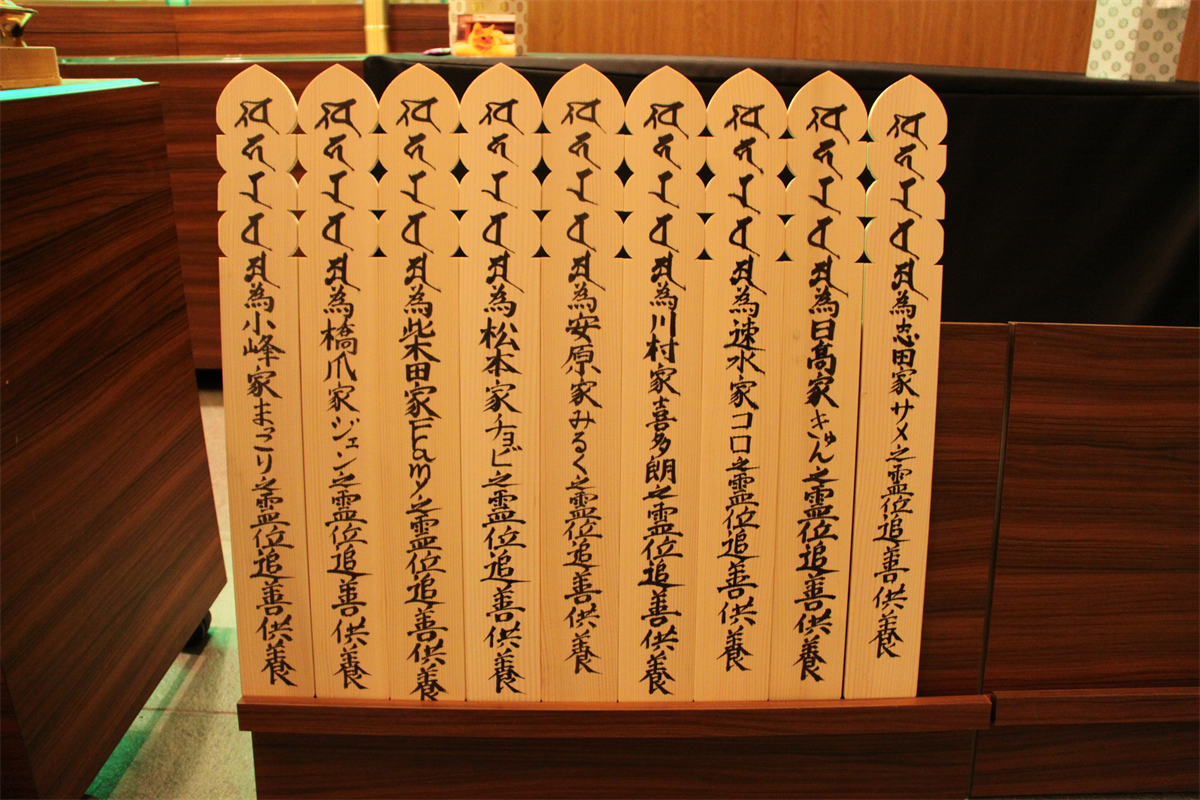 為志田家サメ之霊位追善供養
為日髙家きゅん之霊位追善供養
為速水家コロ之霊位追善供養
為川村家喜多朗之霊位追善供養
為安原家みるく之霊位追善供養
為松本家チョビ之霊位追善供養
為柴田家Famy之霊位追善供養
為橋爪家ジェン之霊位追善供養
為小峰家まっこり之霊位追善供養